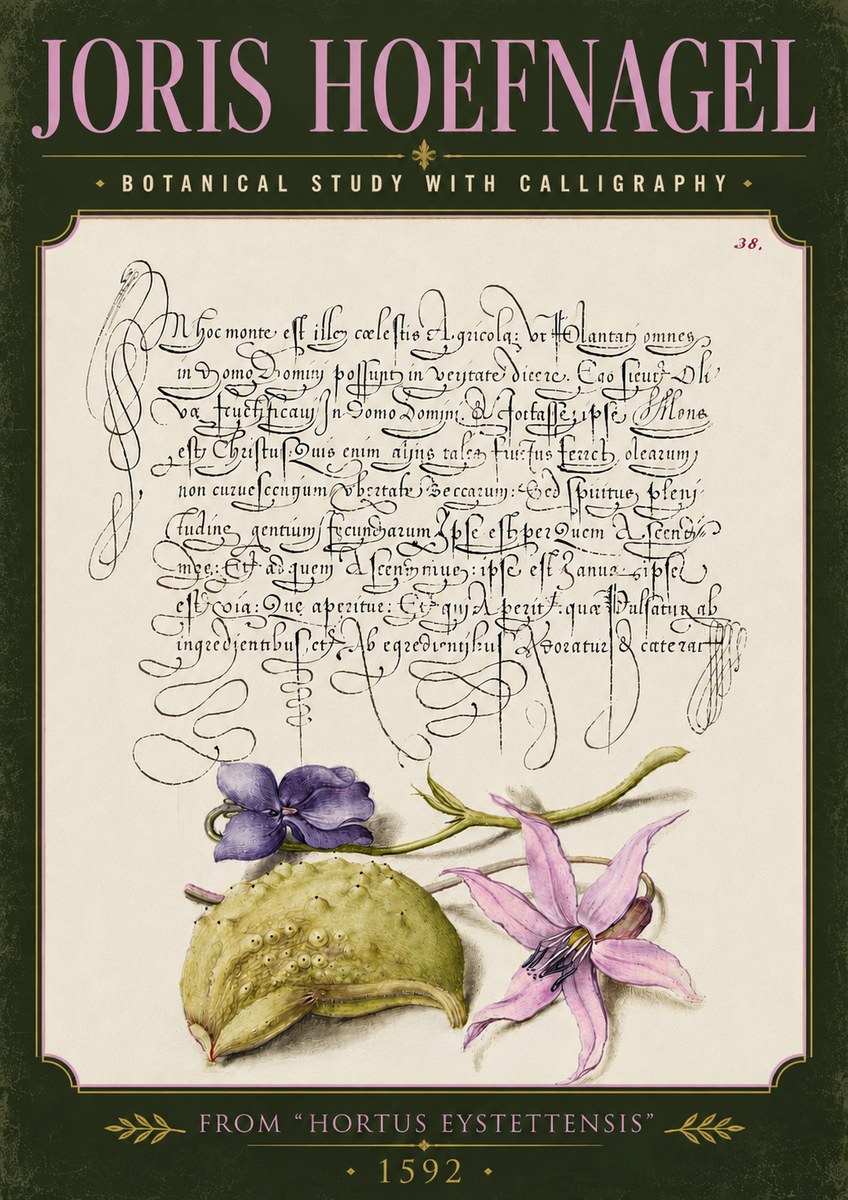 JORIS HOEFNAGEL
BOTANICAL STUDY WITH CALLIGRAPHY
38.
hoc monte est ille cœlestis Agricola: vt Plantati omnes
in Domo Domini possunt in veritate dicere. Ego sicut Oli
va fructificaui In Domo Domini. & fortasse ipse Mons
est Christus. Quis enim tales ferret olearum
non vbertate Beccarum: Sed spiritus pleni-
tudine gentium fecundarum Ipse est per Quem
ad quem ipse est Ianua ipse
est via: Que aperitur: Et qui Aperit: quæ Pulsatur ab
ingredientibus, et Ab egredientibus Adoratur &
FROM “HORTUS EYSTETTENSIS”
1592